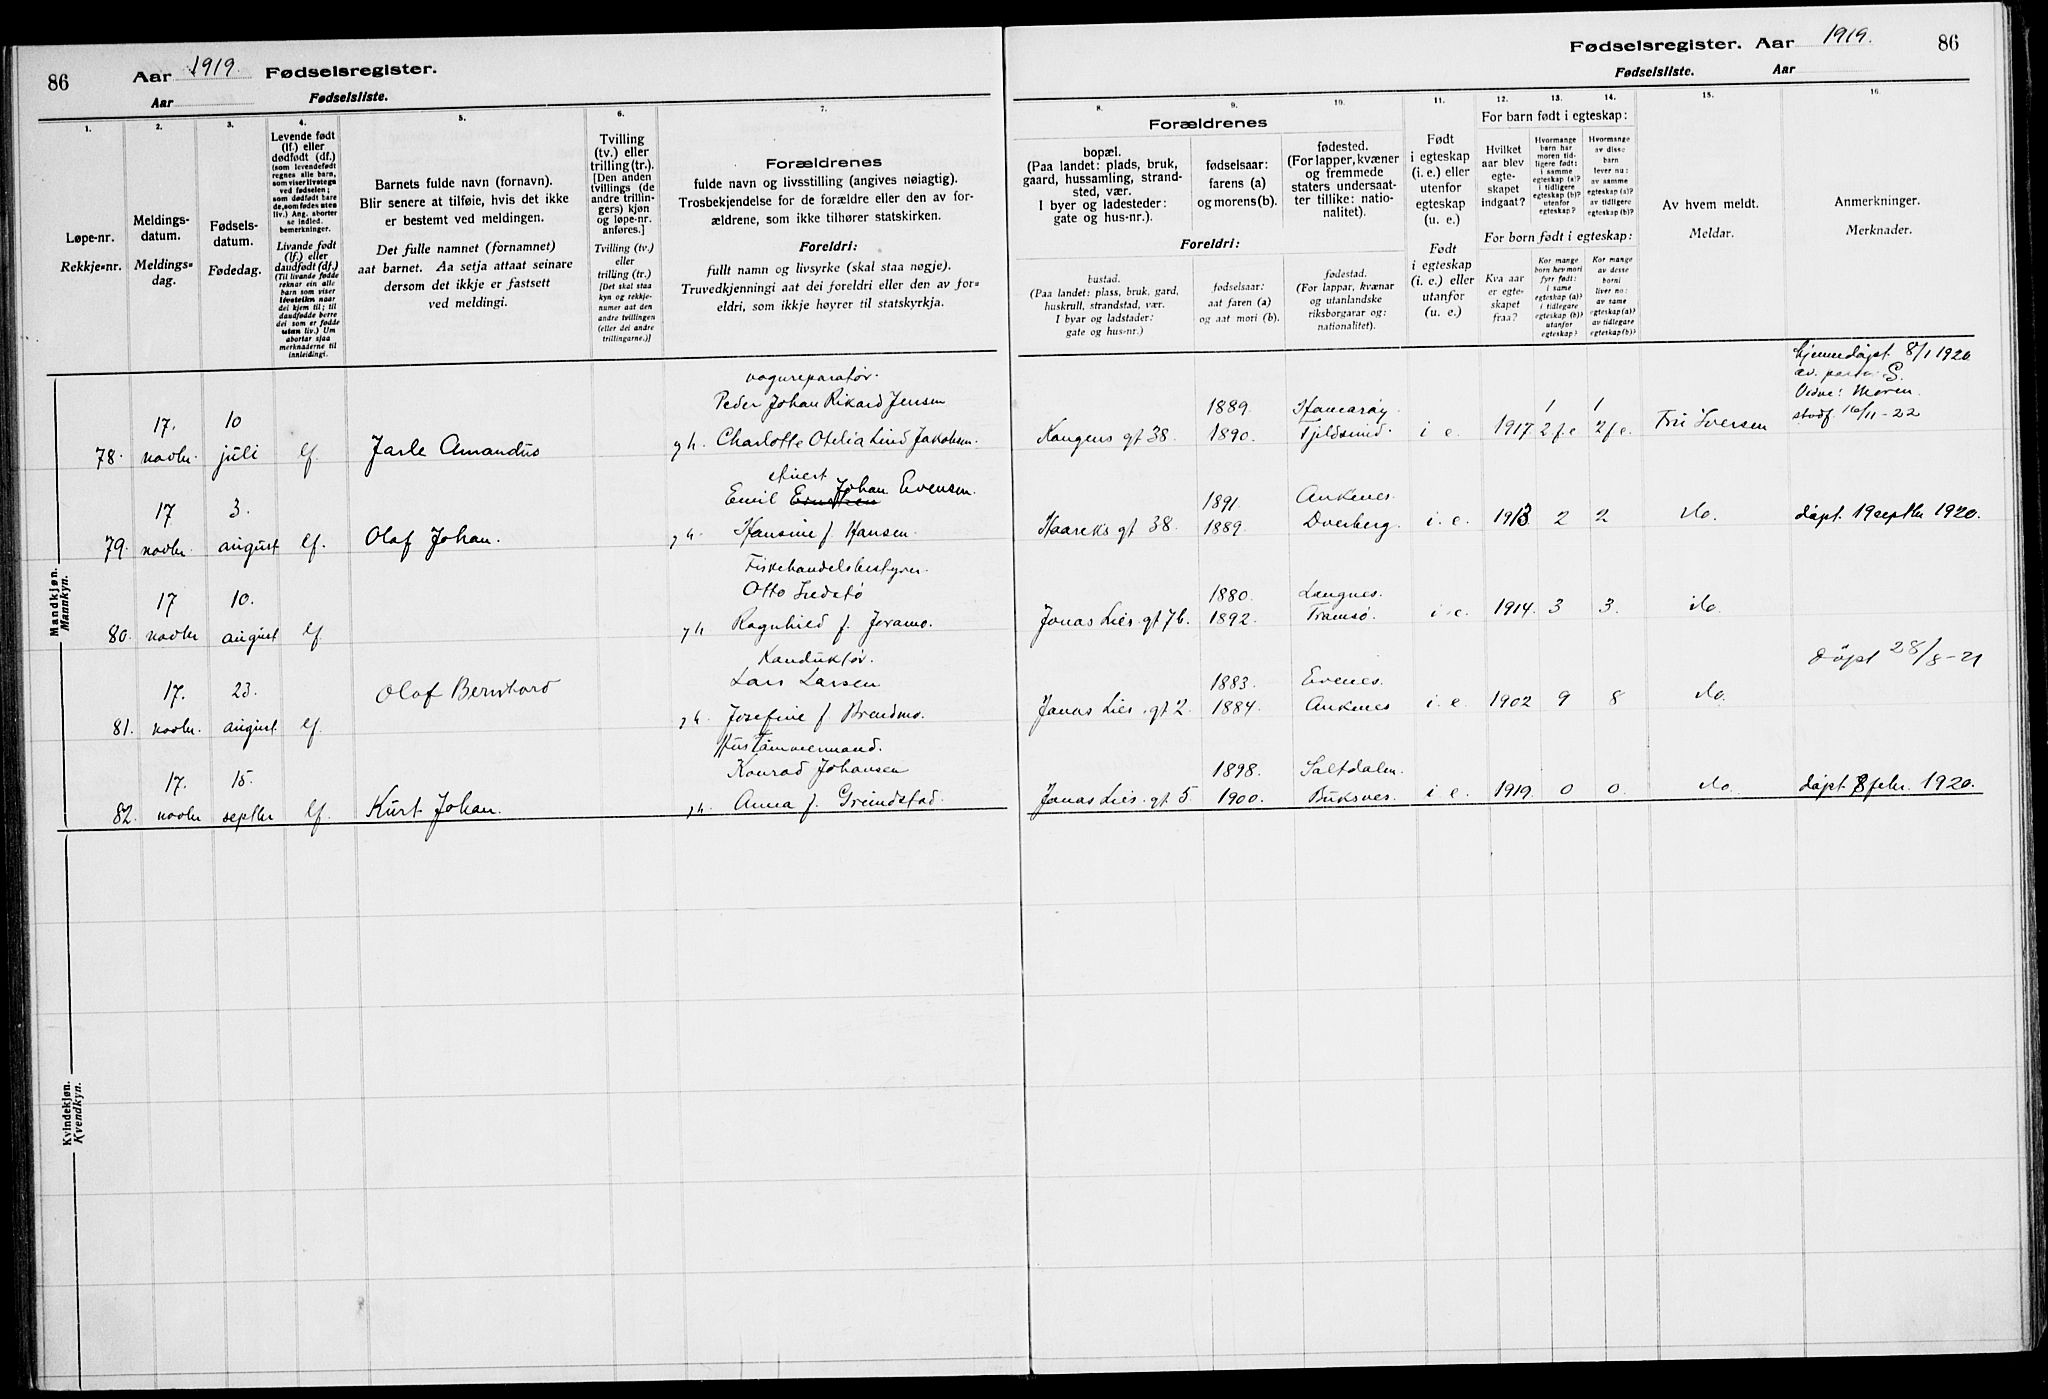 86
Aar 1919. Fødselsregister.
Aar Fødselsliste.
Fødselsregister. Aar 1919. 86
Fødselsliste. Aar
1.
Løpe-nr.
Rekkje-nr.
2.
Meldings-
datum.
Meldings-
dag.
3.
Fødsels-
datum.
Fødedag.
4.
Levende født
(lf.) eller
dødfødt (df.)
(som levendefødt
regnes alle barn,
som viser livstegn
ved fødselen;
som dødfødt bare
de, som fødes uten
liv.) Ang. aborter
se indled.
bemerkninger.
Livande født
(lf.) eller
daudfødt (df.)
(Til livande fødde
reknar ein alle
born som viser
livsteikn naar
dei kjem til; til
daudfødde berre
dei som er fødde
utan liv.) Um
abortar sjaa
merknaderne til
innleidingi.
5.
Barnets fulde navn (fornavn).
Blir senere at tilføie, hvis det ikke
er bestemt ved meldingen.
Det fulle namnet (fornamnet)
aat barnet. Aa setja attaat seinare
dersom det ikkje er fastsett
ved meldingi.
6.
Tvilling
(tv.) eller
trilling (tr.).
[Den anden
tvillings (de
andre trillin-
gers) kjøn
og løpe-nr.
anføres.]
Tvilling (tv.)
eller
trilling (tr.)
[Det skal staa
kyn og rekkje-
numer aat den
andre tvillingen
(eller dei andre
trillingarne.)]
7.
Forældrenes
fulde navn og livsstilling (angives nøiagtig).
Trosbekjendelse for de forældre eller den av for-
ældrene, som ikke tilhører statskirken.
Foreldri:
fullt namn og livsyrke (skal staa nøgje).
Truvedkjenningi aat dei foreldri eller den av for-
eldri, som ikkje høyrer til statskyrkja.
Forældrenes
8.
bopæl.
(Paa landet: plads, bruk,
gaard, hussamling, strand-
sted, vær.
I byer og ladesteder:
gate og hus-nr.).
9.
fødselsaar:
farens (a)
og morens (b).
10.
fødested.
(For lapper, kvæner
og fremmede
staters undersaat-
ter tillike: natio-
nalitet).
Foreldri:
bustad.
(Paa landet: plass, bruk, gard,
huskrull, strandstad, vær.
I byar og ladstader:
gate og hus-nr.)
fødselsaar:
aat faren (a)
og aat mori (b).
fødestad.
(For lappar, kvænar
og utanlandske
riksborgarar og:
nationalitet).
11.
Født
i egteskap
(i. e.) eller
utenfor
egteskap
(u. e.)
Født
i egteskap
(i. e.) eller
utanfor
(u. e.)
For barn født i egteskap:
12.
Hvilket
aar blev
egte-
skapet
indgaat?
13.
Hvormange
barn har
moren tid-
ligere født:
i samme
egteskap (a)?
i tidligere
egteskap (b)?
utenfor
egteskap?
14.
Hvormange
av disse
barn
lever nu:
av samme
egteskap (a)?
av tidligere
egteskap (b)?
For born født i egteskap:
Kva aar
er egte-
skapet
fraa?
Kor mange
born hev mori
fyrr født:
i same
egteskap (a)?
i tidlegare
egteskap (b)?
utanfor
egteskap?
Kor mange
av desse
borni
liver no:
av same
egteskap (a)?
av tidlegare
egteskap (b)?
15.
Av hvem meldt.
Meldar.
16.
Anmerkninger.
Merknader.
Mandkjøn.
Mannkyn.
78. 17. novbr. 10 juli lf. Jarle Amandus
vognreparatør.
Peder Johan Rikard Jensen
gh. Charlotte Otelia Lind Jakobsen.
Kongens gt 38. 1889. 1890. Hamarøy. Fjeldsund. i e. 1917 1 2 f.e 1 2 f.e. Fru Iversen
hjemmedøpt 8/1 1920
av S.
Vidne: Moren.
stadf. 16/11-22
79. 17 novbr. 3. august lf. Olaf Johan.
Emil Johan Evensen.
gh. Hansine f. Hansen.
Haareks gt 38. 1891. 1889. Ankenes. Dverberg. i. e. 1913 2 2 do. døpt. 19 septbr 1920.
80. 17 novbr 10. august lf
Fiskehandelsbestyrer
Otto
gh Ragnhild f. Joramo.
Jonas Lies gt 76. 1880. 1892. Langnes. Tromsø. i e. 1914. 3 3. do.
81. 17. novbr. 23. august. lf. Olaf Bernhard
Konduktør.
Lars Larsen
gh. Josefine f Brendmo.
Jonas Lies gt 2. 1883. 1884. Evenes. Ankenes i. e. 1902 9 8 do. Døpt 28/8-21
82. 17. novbr 15. septbr lf. Kurt Johan.
Hustømmermand.
Konrad Johansen
gh. Anna f. Greindstad.
Jonas Lies gt. 5. 1898. 1900. Saltdalen. Buksnes. i e. 1919. 0 0. do. døpt 8 febr. 1920.
Kvindekjøn.
Kvendkyn.